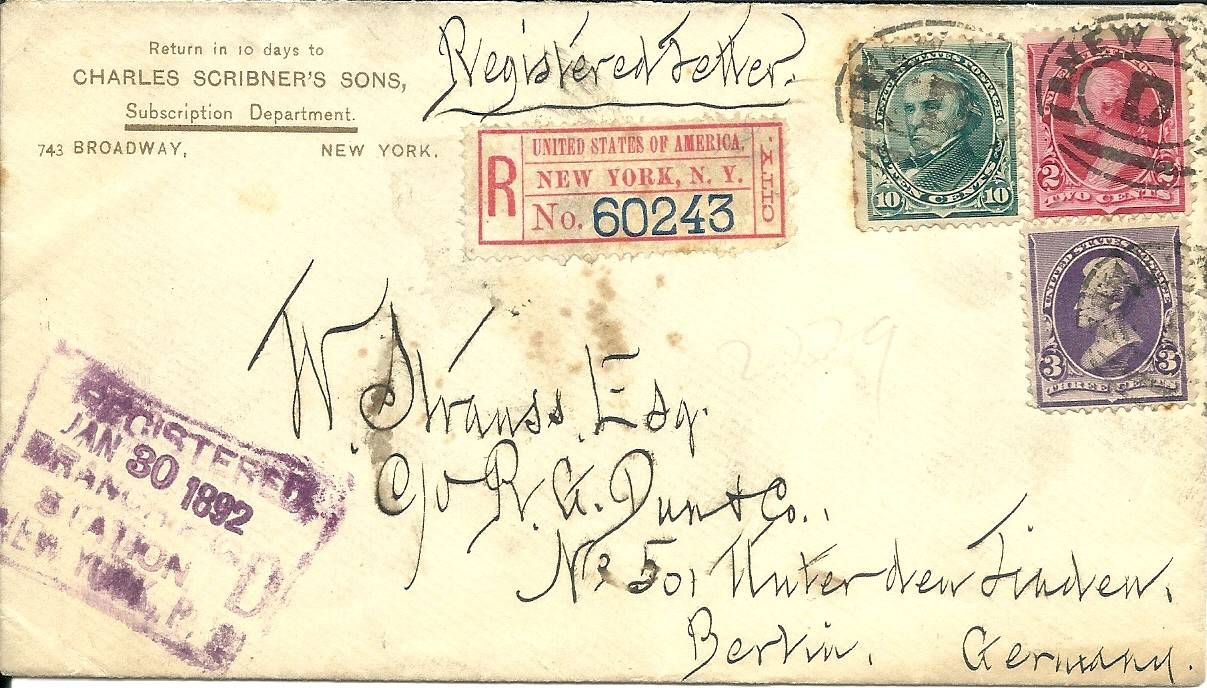 Return in 10 days to
CHARLES SCRIBNER'S SONS,
Subscription Department.
743 BROADWAY, NEW YORK.
Registered Letter.
R
UNITED STATES OF AMERICA,
NEW YORK, N. Y.
No. 60243
CITY.
UNITED STATES POSTAGE
10 10
TEN CENTS
NEW Y
D
2 2
TWO CENTS
UNITED STATES POSTAGE
3 3
THREE CENTS
2229
W. Strauss, Esq.
c/o R. G. Dun & Co.,
No 501 Unter den Linden,
Berlin, Germany.
REGISTERED
JAN 30 1892
BRANCH
STATION D
NEW YORK, P.